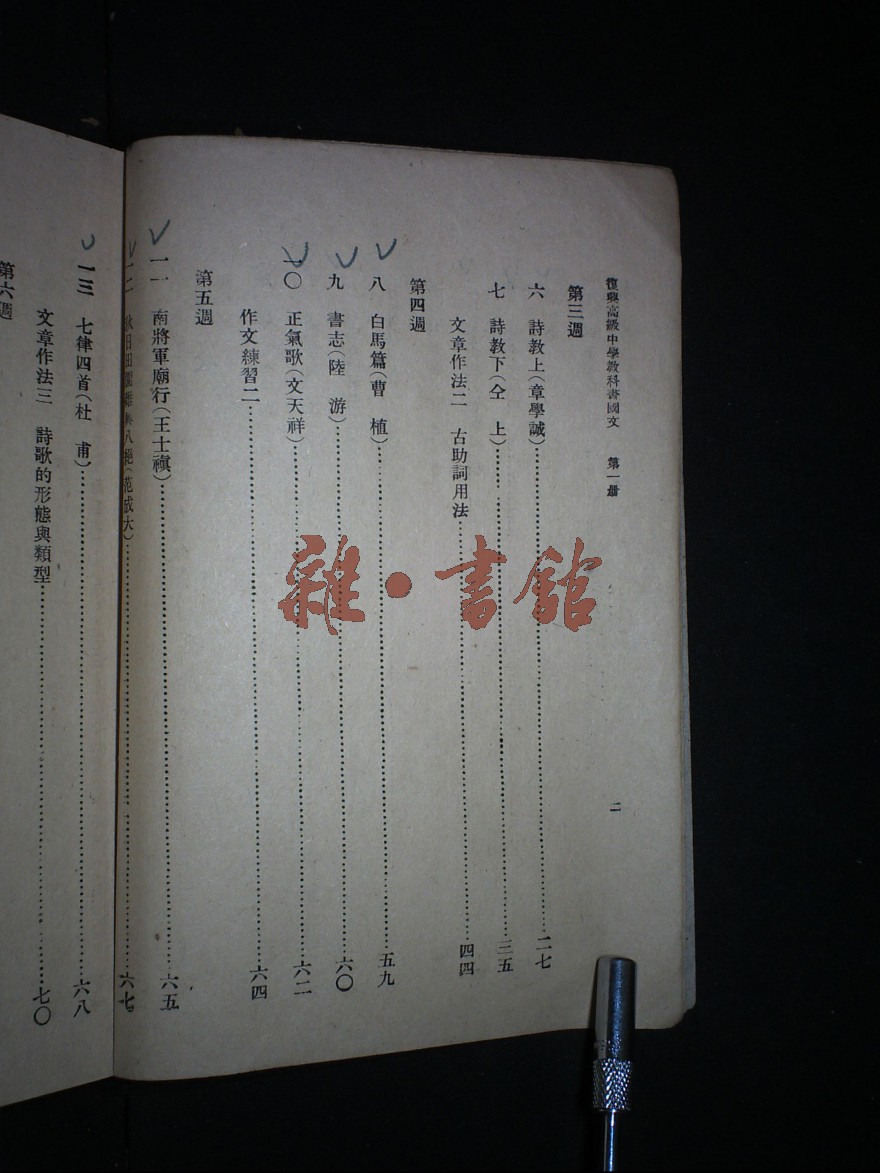 復興高級中學教科書國文 第一冊
二
第三週
六 詩教上(章學誠)……二七
七 詩教下(仝 上)……三五
文章作法二 古助詞用法……四四
第四週
八 白馬篇(曹 植)……五九
九 書志(陸 游)……六〇
一〇 正氣歌(文天祥)……六二
作文練習二……六四
第五週
一一 南將軍廟行(王士禛)……六五
一二 秋日田園雜興八絕(范成大)……六七
一三 七律四首(杜 甫)……六八
文章作法三 詩歌的形態與類型……七〇
第六週
雜·書館